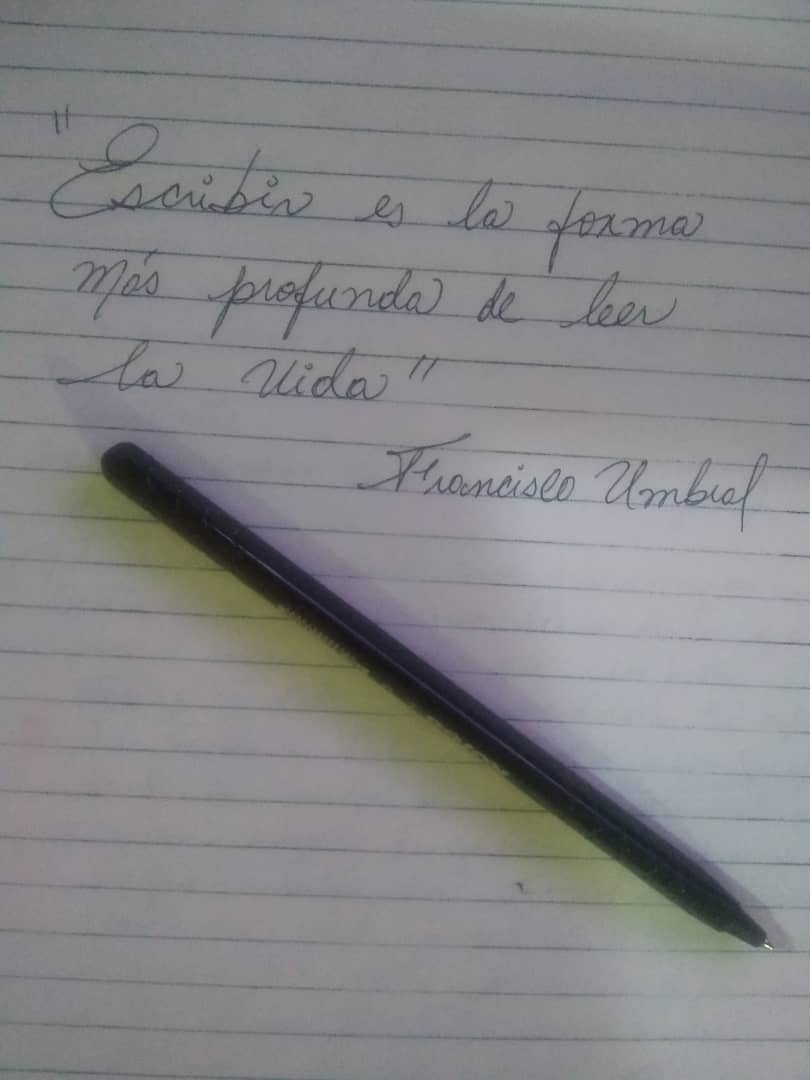 "Escribir es la forma
más profunda de leer
la vida"
Francisco Umbral